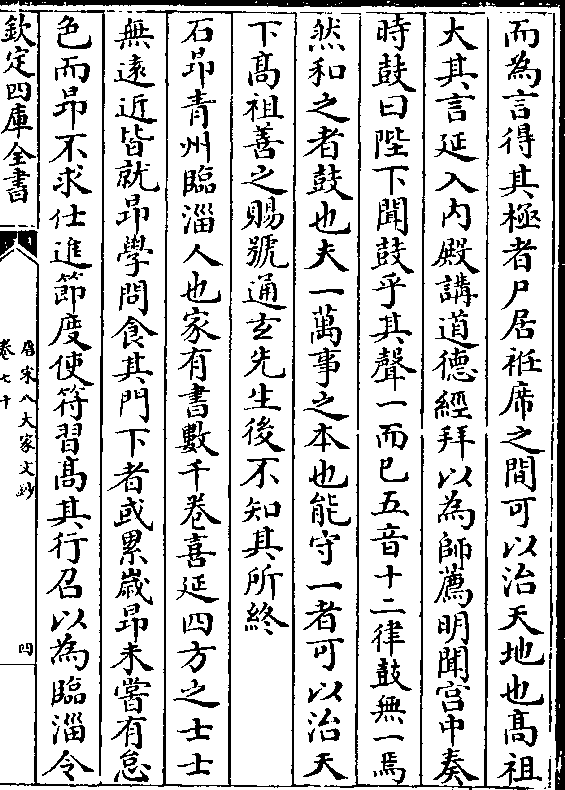 而為言得其極者尸居袵席之間可以治天地也髙祖
大其言延入内殿講道德經拜以為師薦明聞宫中奏
時鼓曰陛下聞鼓乎其聲一而已五音十二律鼓無一焉
然和之者鼓也夫一萬事之本也能守一者可以治天
下髙祖善之賜號通玄先生後不知其所終
石昂青州臨淄人也家有書數千卷喜延四方之士士
無逺近皆就昂學問食其門下者或累歲昂未嘗有怠
色而昂不求仕進節度使符習髙其行召以為臨淄令
欽定四庫全書
唐宋八大家文鈔
卷七十
四